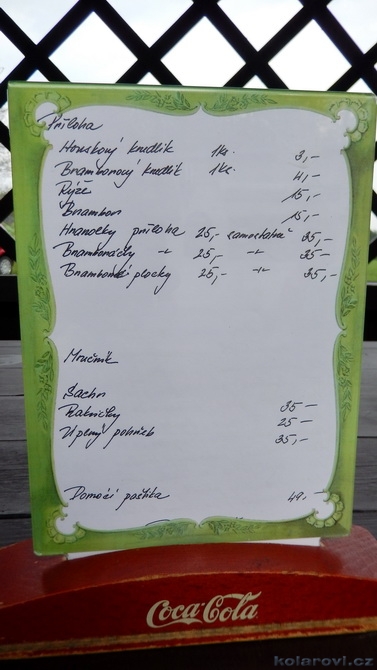 Příloha
Houskový knedlík 1ks. 3,-
Bramborový knedlík 1ks. 4,-
Rýže 15,-
Brambor 15,-
Hranolky příloha 25,- samostatně 35,-
Bramboráčky -"- 25,- -"- 35-
Bramborové placky 25,- -"- 35,-
Moučník
Sachr 35-
Rakvičky 25-
35,-
Domácí paštika 49,-
Coca-Cola
kolarovi.cz